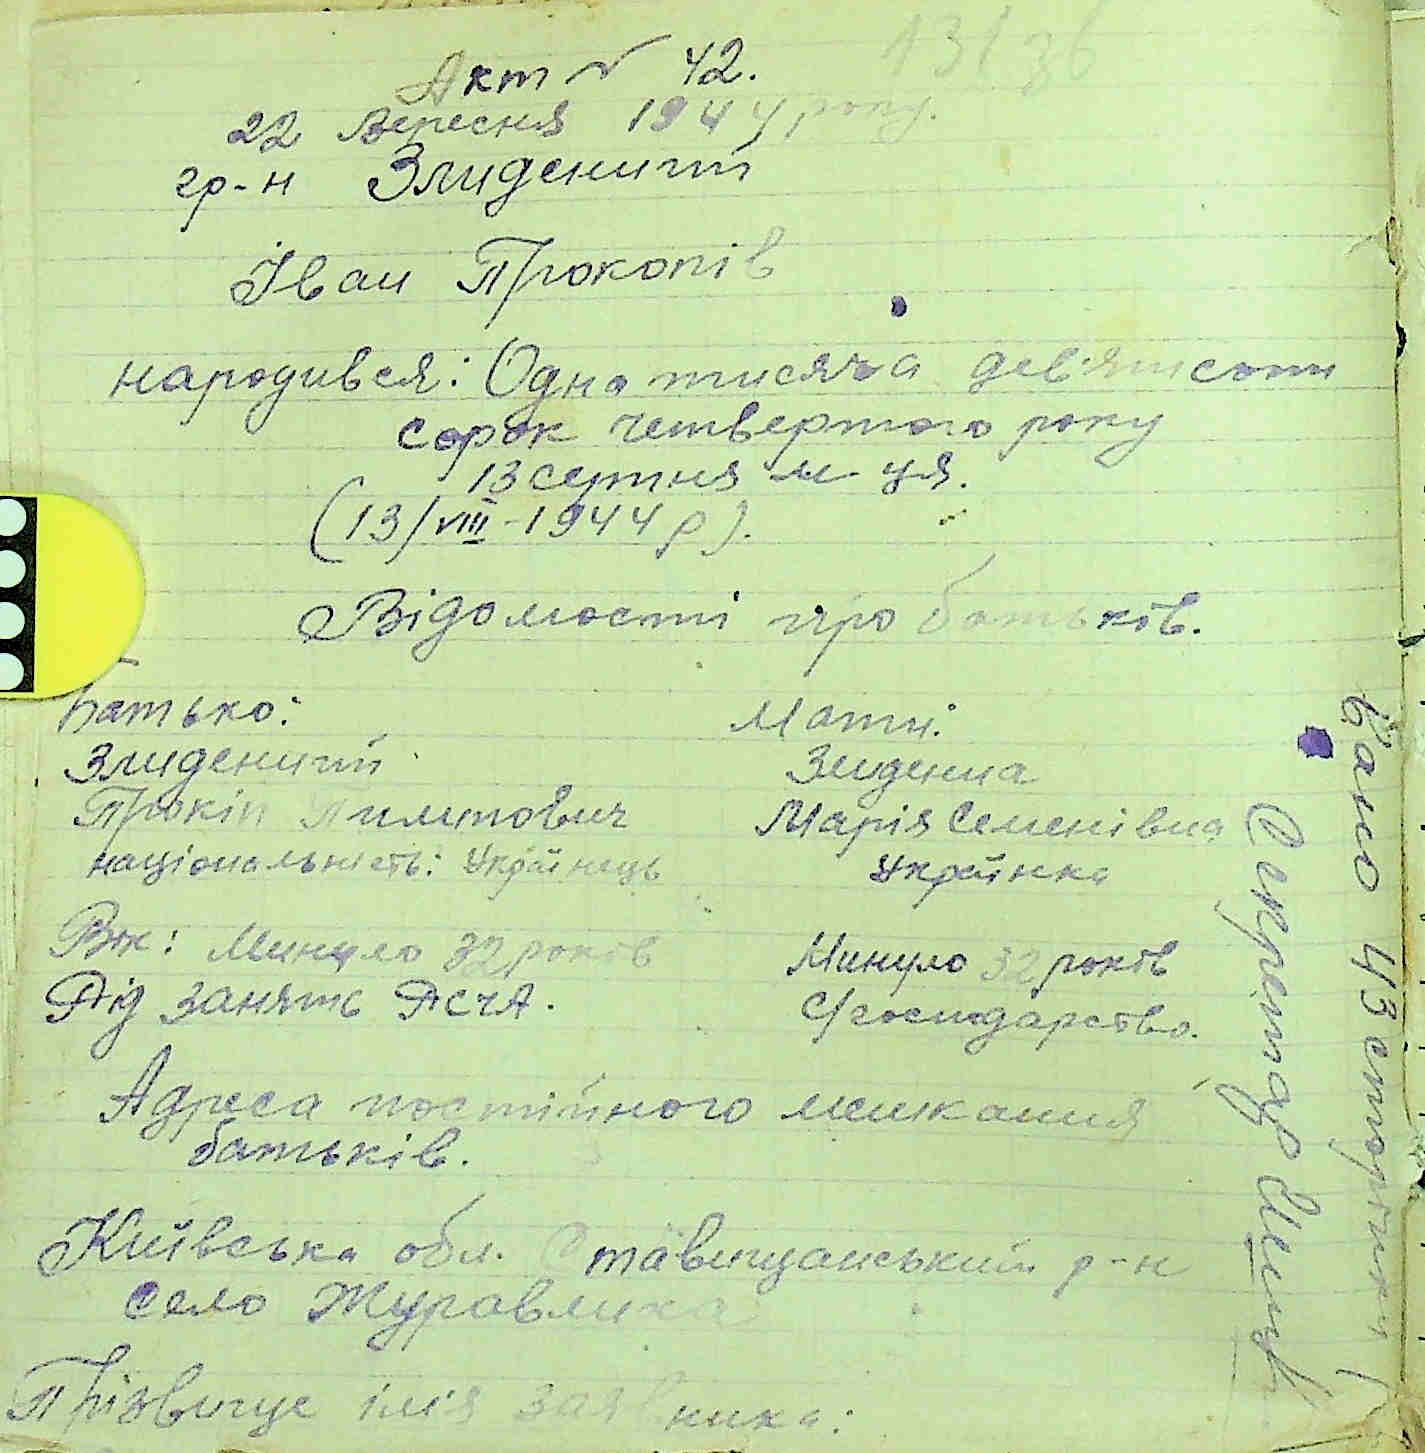 131 зв
Акт № 42.
22 Вересня 1944 року.
гр-н Злиденний
Іван Прокопів
народився: Одна тисяча дев'ятсоти
сорок четвертого року
13 серпня м-ця.
(13/VIII-1944 р).
Відомості про батьків.
Батько:
Злиденний
Прокіп
національність: Українець
Вік: Минуло 32 років
Рід занять РСЧА.
Мати:
Зиденна
Марія Семенівна
Українка
Минуло 32 років
С/господарство.
Адреса постійного мешкання
батьків.
Київська обл. Ставищанський р-н
село Журавлиха
Прізвище ім'я заявника:
Секретар
43 сторінки